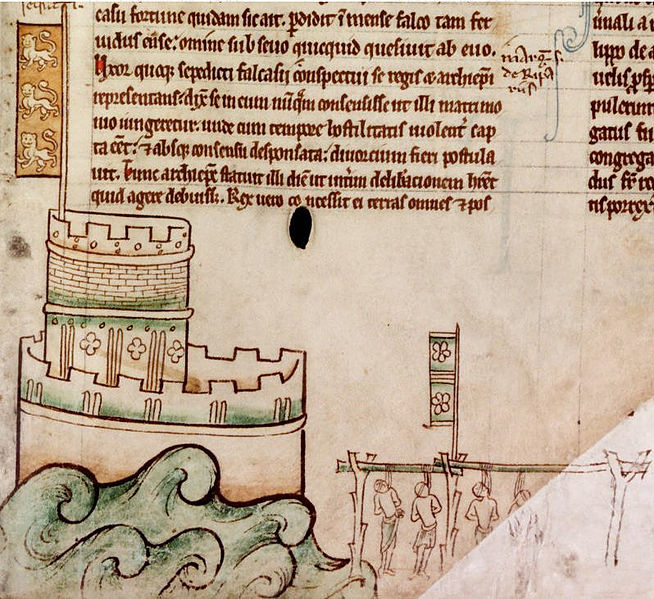 casu fortune quidam sic ait. pdidit ĩmense falco tam fer
uidus ense: omine sub seuo quicquid quesiuit ab euo.
Uxor quoq; sepedicti falcasii cõspectui se regis ⁊ archiepĩ
representans: dix̃ se in eum nũq̃m consensisse ut illi matrimo
nio iungeretur. unde cum tempore hostilitatis uiolent̉ cap
ta eẽt: ⁊ absq; consensu desponsata: diuorcium fieri postula
uit. Tunc archiepc̃ statuit illi diẽ ut int̉im delib̃acionem hr̃et
quid agere debuiss. Rex uero cõcessit ei terras omnes ⁊ pos
de Ripa
lippo de a
pulerunt
gatus fu
congrega